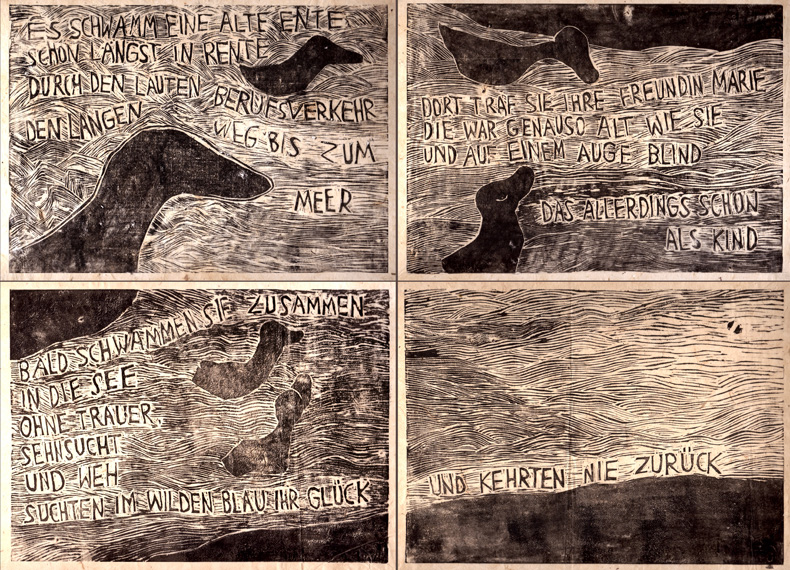 ES SCHWAMM EINE ALTE ENTE
SCHON LÄNGST IN RENTE
DURCH DEN LAUTEN BERUFSVERKEHR
DEN LANGEN WEG BIS ZUM
MEER
DORT TRAF SIE IHRE FREUNDIN MARIE
DIE WAR GENAUSO ALT WIE SIE
UND AUF EINEM AUGE BLIND
DAS ALLERDINGS SCHON
ALS KIND
BALD SCHWAMMEN SIE ZUSAMMEN
IN DIE SEE
OHNE TRAUER,
SEHNSUCHT
UND WEH
SUCHTEN IM WILDEN BLAU IHR GLÜCK
UND KEHRTEN NIE ZURÜCK